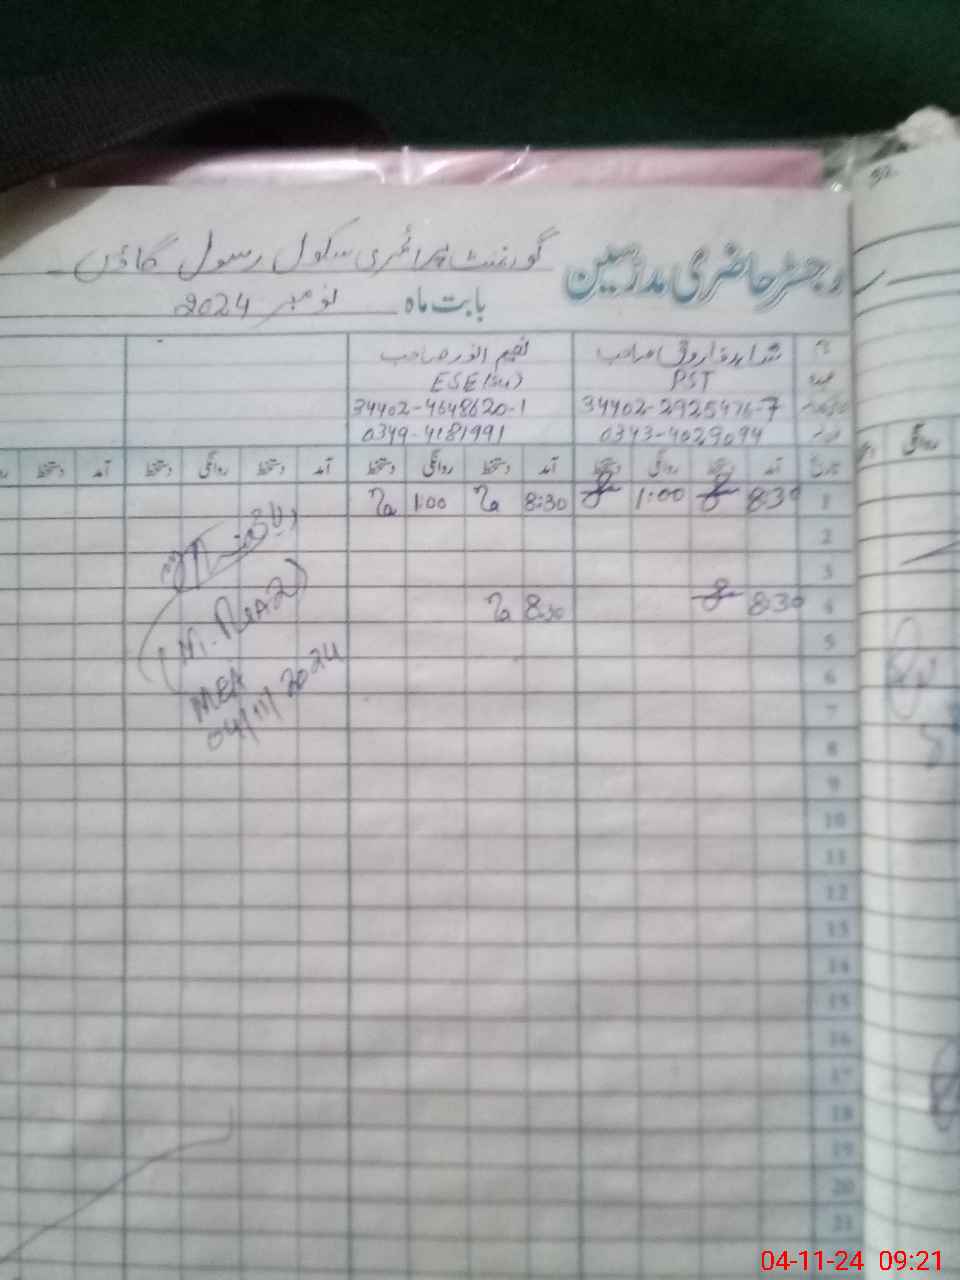 رجسٹر حاضری مدرسین گورنمنٹ پرائمری سکول رسول گاؤں
بابت ماہ نومبر 2024
شاہد فاروق صاحب
PST
34402-2925476-7
0343-4029094
نعیم انور صاحب
ESE
34402-4648620-1
0349-4181991
تاریخ آمد دستخط روانگی دستخط آمد دستخط روانگی دستخط آمد دستخط روانگی دستخط آمد دستخط
1 8:30 1:00 8:30 1:00
2
3
4 8:30 8:30
5
6
7
8
9
10
11
12
13
14
15
16
17
18
19
20
21
MEA
04/11/2024
روانگی
04-11-24 09:21